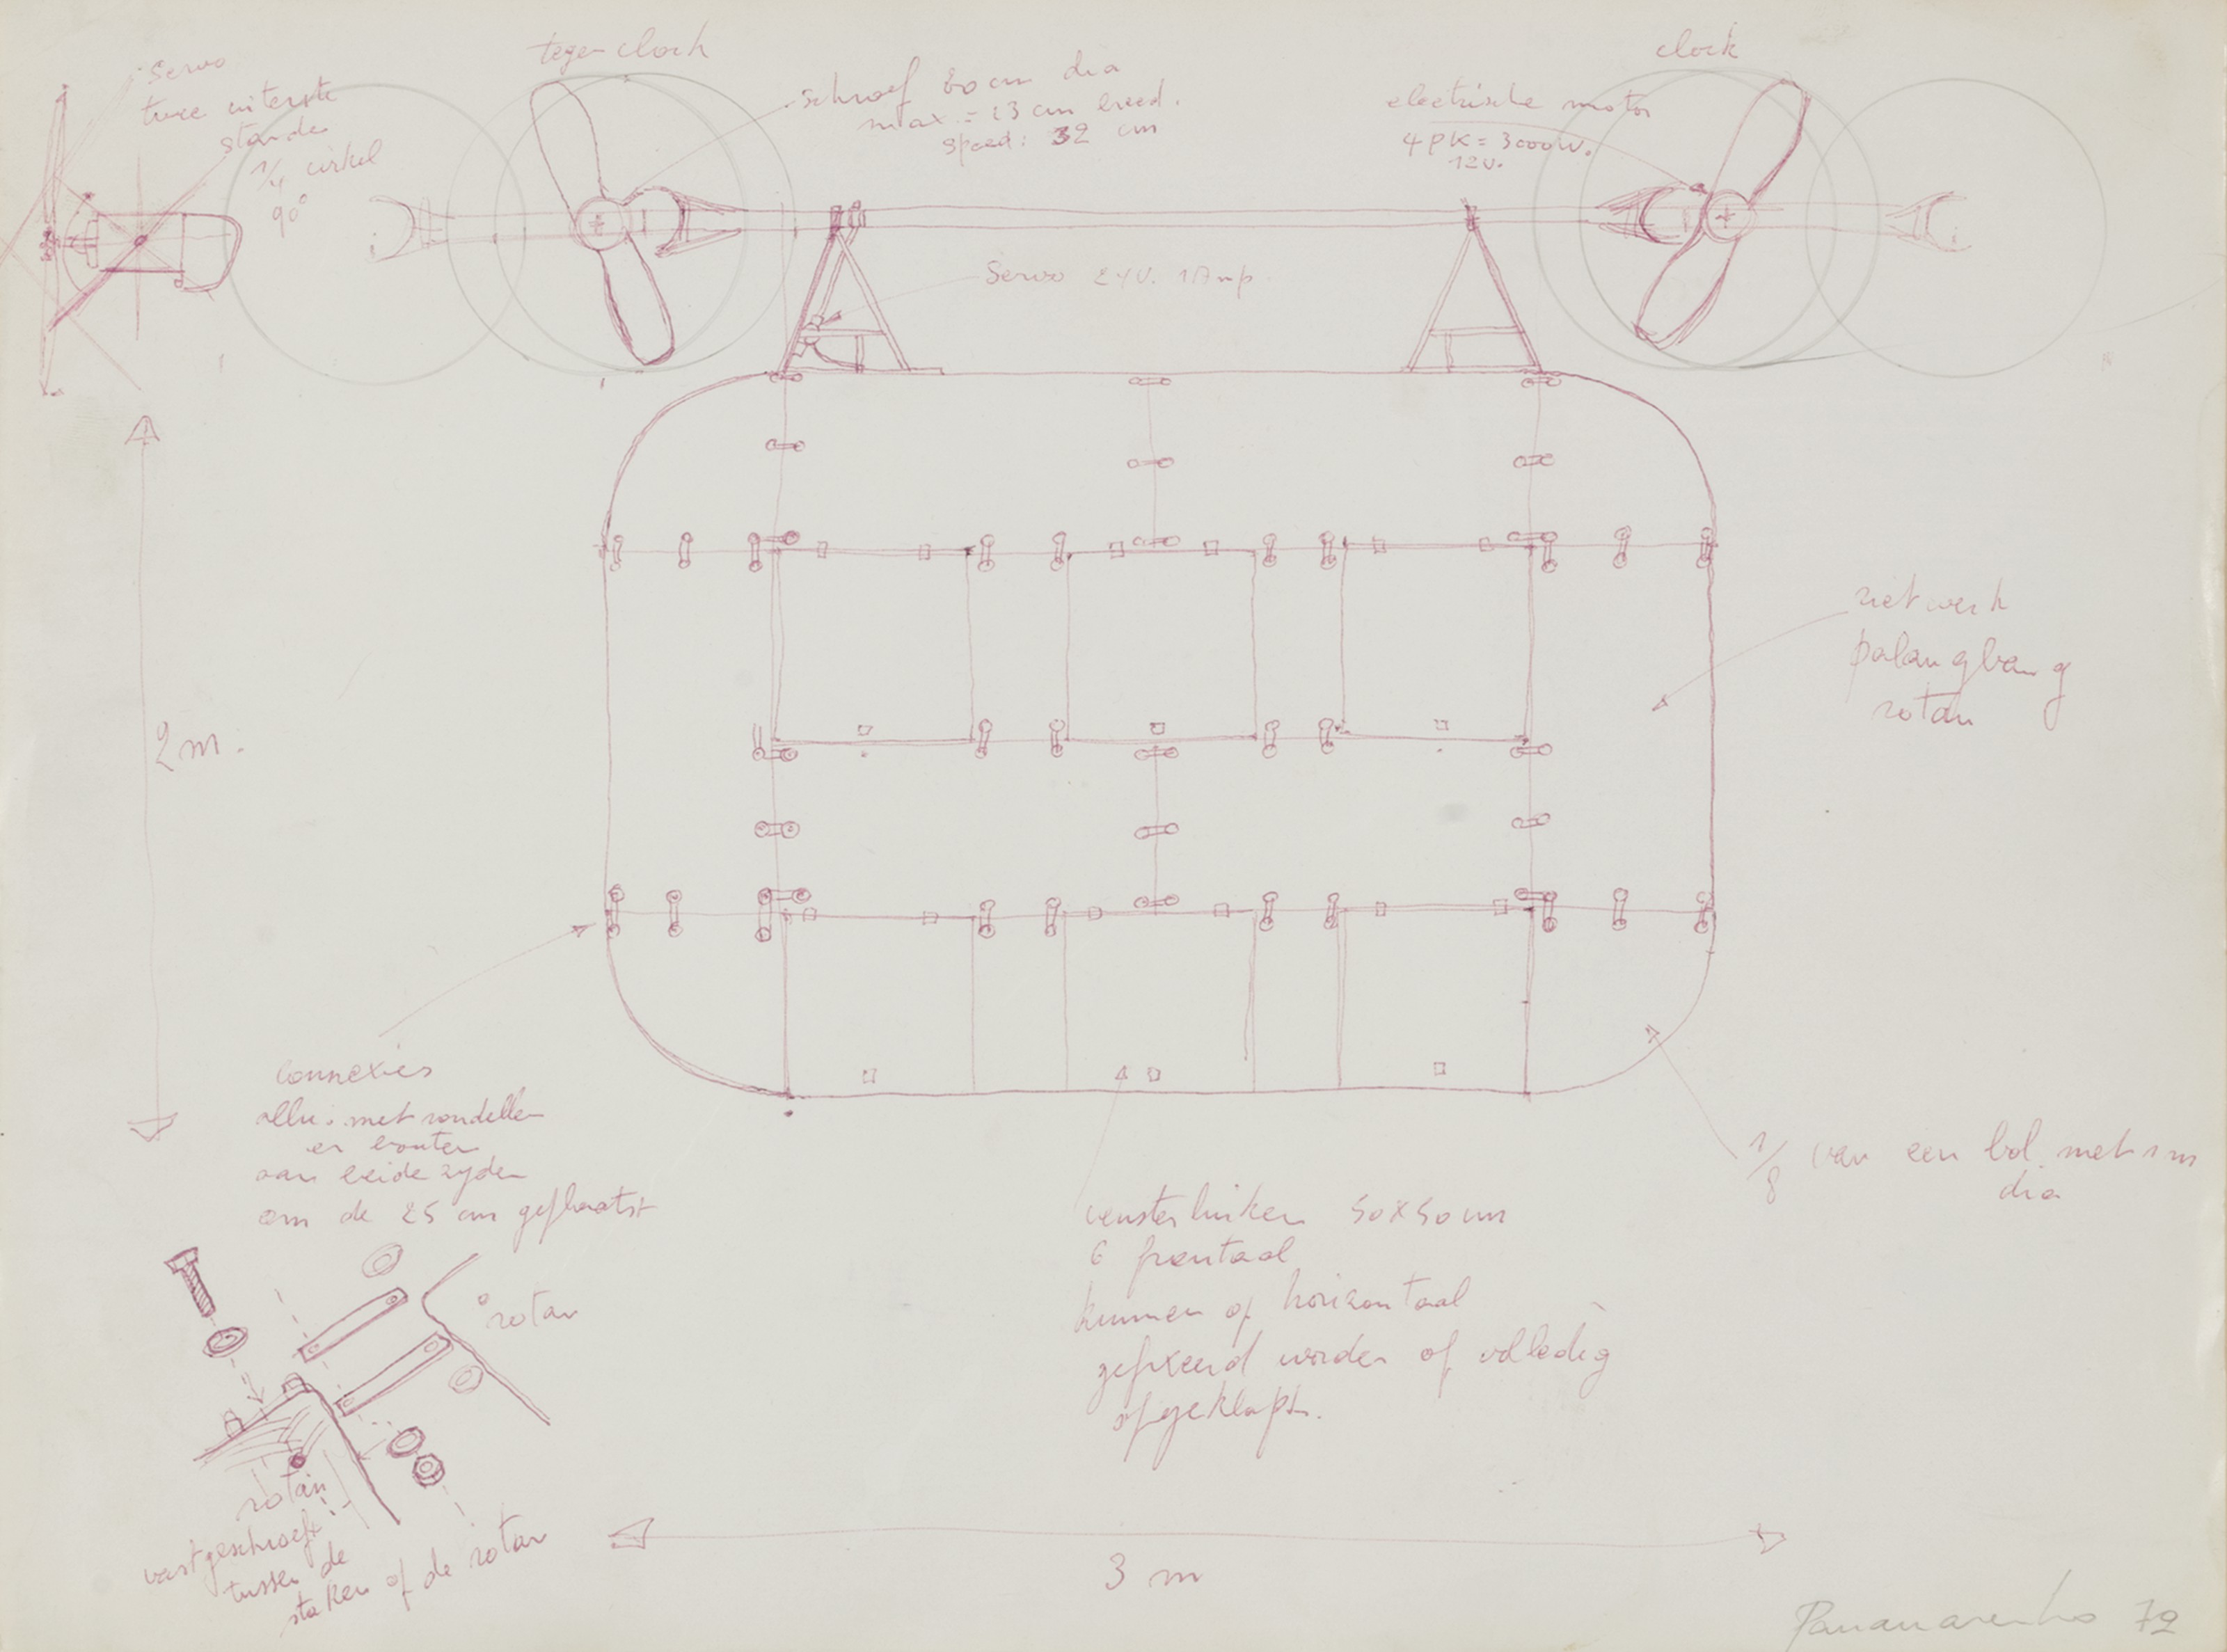 servo
twee uiterste
standen
1/4 cirkel
90°
tegen clock
schroef 80 cm dia
max. = 13 cm breed.
speed: 32 cm
clock
electrische motor
4 PK = 3000 W.
12 V.
Servo 24 V. 1 Amp.
2 m.
rietwerk
palangbang
rotan
connexies
allu. met rondellen
en bouten
aan beide zyden
om de 25 cm geplaatst
1/8 van een bol met 1 m
dia
vensterluiken 50 x 50 cm
6 frontaal
kunnen of horizontaal
gefixeerd worden of volledig
afgeklapt.
rotan
rotan
vastgeschroeft
tussen de
staken of de rotan
3 m
Panamarenko 72